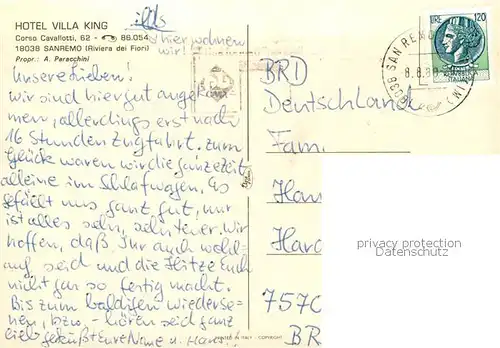 HOTEL VILLA KING
Corso Cavallotti, 62 - 86.054
18038 SANREMO (Riviera dei Fiori)
Propr.: A. Paracchini
hier wohnen
wir!
Unsere Lieben!
Wir sind hier gut angekom
men, allerdings erst nach
16 Stunden Zugfahrt. Zum
Glück waren wir die ganze Zeit
alleine im Schlafwagen. Es
gefällt uns ganz gut, nur
ist alles sehr, sehr teuer. Wir
hoffen, daß Ihr auch wohl=
auf seid und die Hitze Euch
nicht gar so fertig macht.
Bis zum baldigen Wiederse=
hen, bzw. -hören seid ganz
lieb geküßt Eure Name u. Harost
BRD
Deutschland
Fam.
Han
Harc
7570
BR
LIRE 120
18038 SAN REMO
(IM)
8.8.80
ITALY - COPYRIGHT
privacy protection
Datenschutz